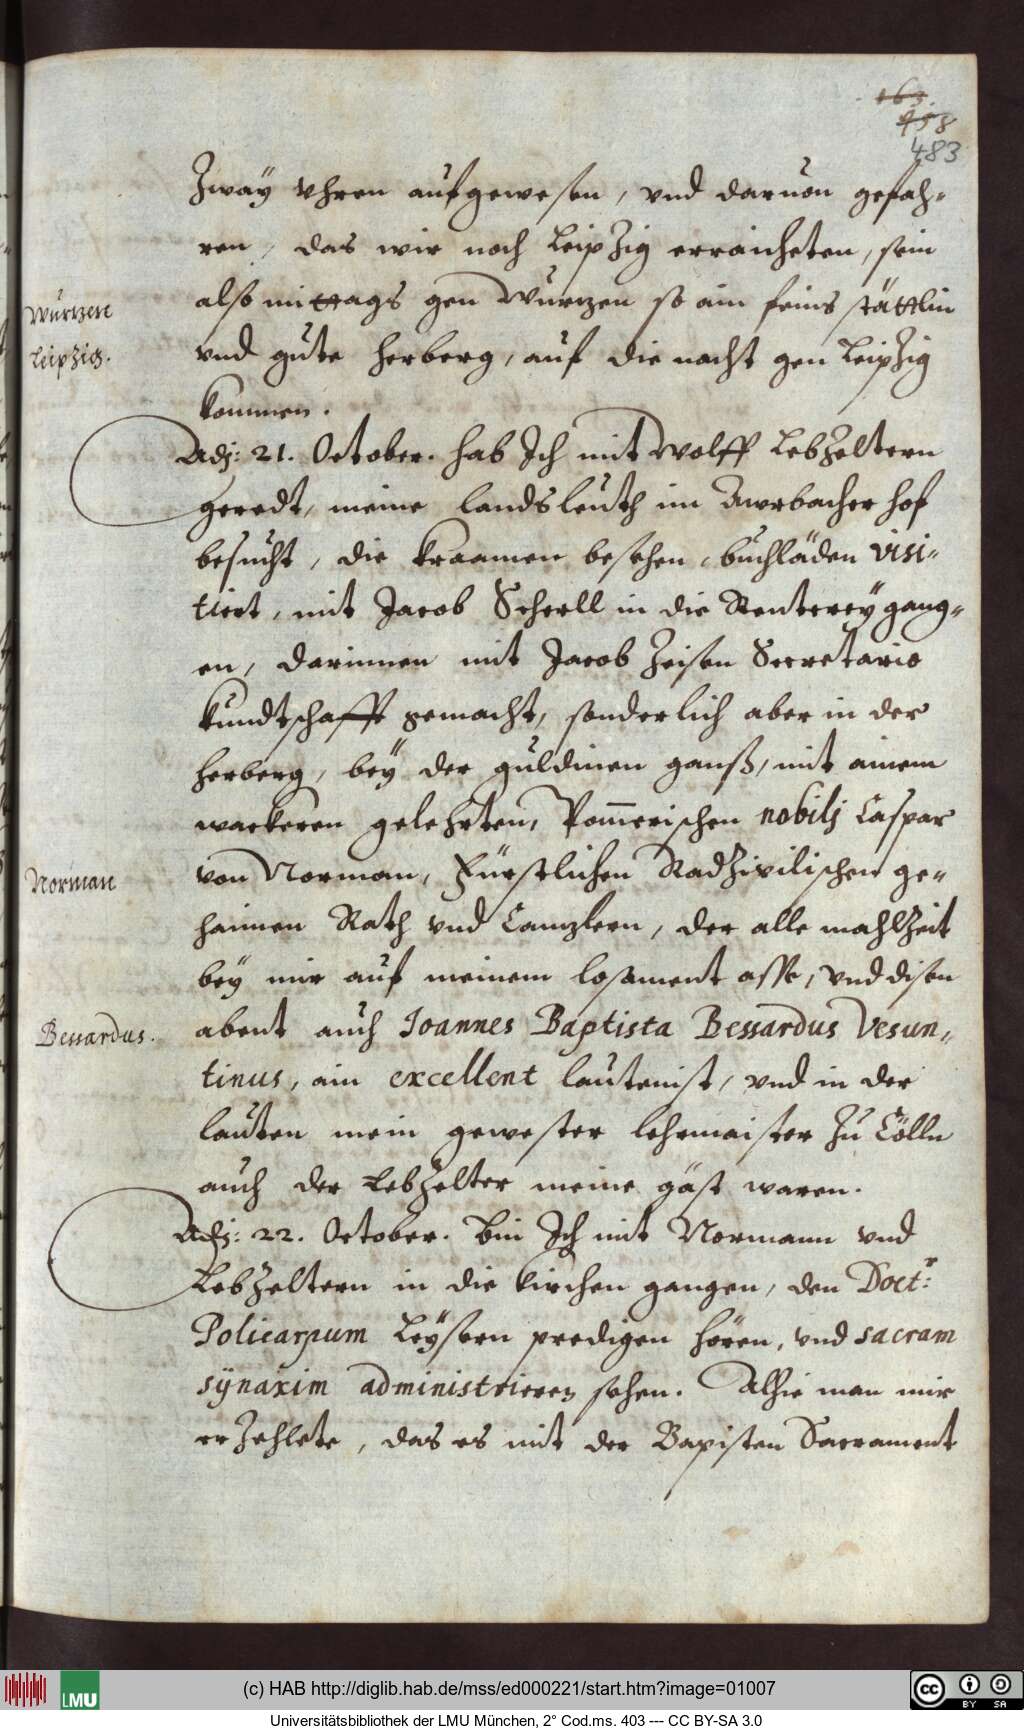 163.
458
483
Zwaÿ vhren aufgewesen, vnd daruon gefah-
ren, das wir noch Leipzig erraicheten, sein
also mittags gen Wurtzen so ain feins stättlin
Wurtzen
Leipzig.
vnd gute herberg, auf die nacht gen Leipzig
kommen.
Adj: 21. October. hab Ich mit Wolff Lebzeltern
geredt, meine landsleuth im Awrbacher hof
besucht, die kraamen besehen, buchläden visi-
tiert, mit Jacob Scherll in die Renterey gang-
en, darinnen mit Jacob Zeisen Secretario
kundtschafft gemacht, sonderlich aber in der
herberg, beÿ der guldinen ganß, mit ainem
wackeren gelehrten, Pom̅erischen nobilj Caspar
von Norman, Fürstlichen Radzivilischen ge-
Norman
haimen Rath vnd Canzlern, der alle mahlzeit
beÿ mir auf meinem losament asse, vnd disen
abent auch Joannes Baptista Bessardus Vesun-
Bessardus.
tinus, ain excellent lautenist, vnd in der
lauten mein gewester lehrmaister zu Cölln
auch der Lebzelter meine gäst waren.
Adj: 22. October. bin Ich mit Normann vnd
Lebzeltern in die kirchen gangen, den Doct:r
Policarpum Leÿsern predigen hören, vnd sacram
sÿnaxim administrieren sehen. Alhie man mir
erzehlete, das es mit der Bapisten Sacrament
(c) HAB http://diglib.hab.de/mss/ed000221/start.htm?image=01007
LMU
cc BY SA
Universitätsbibliothek der LMU München, 2° Cod.ms. 403 --- CC BY-SA 3.0